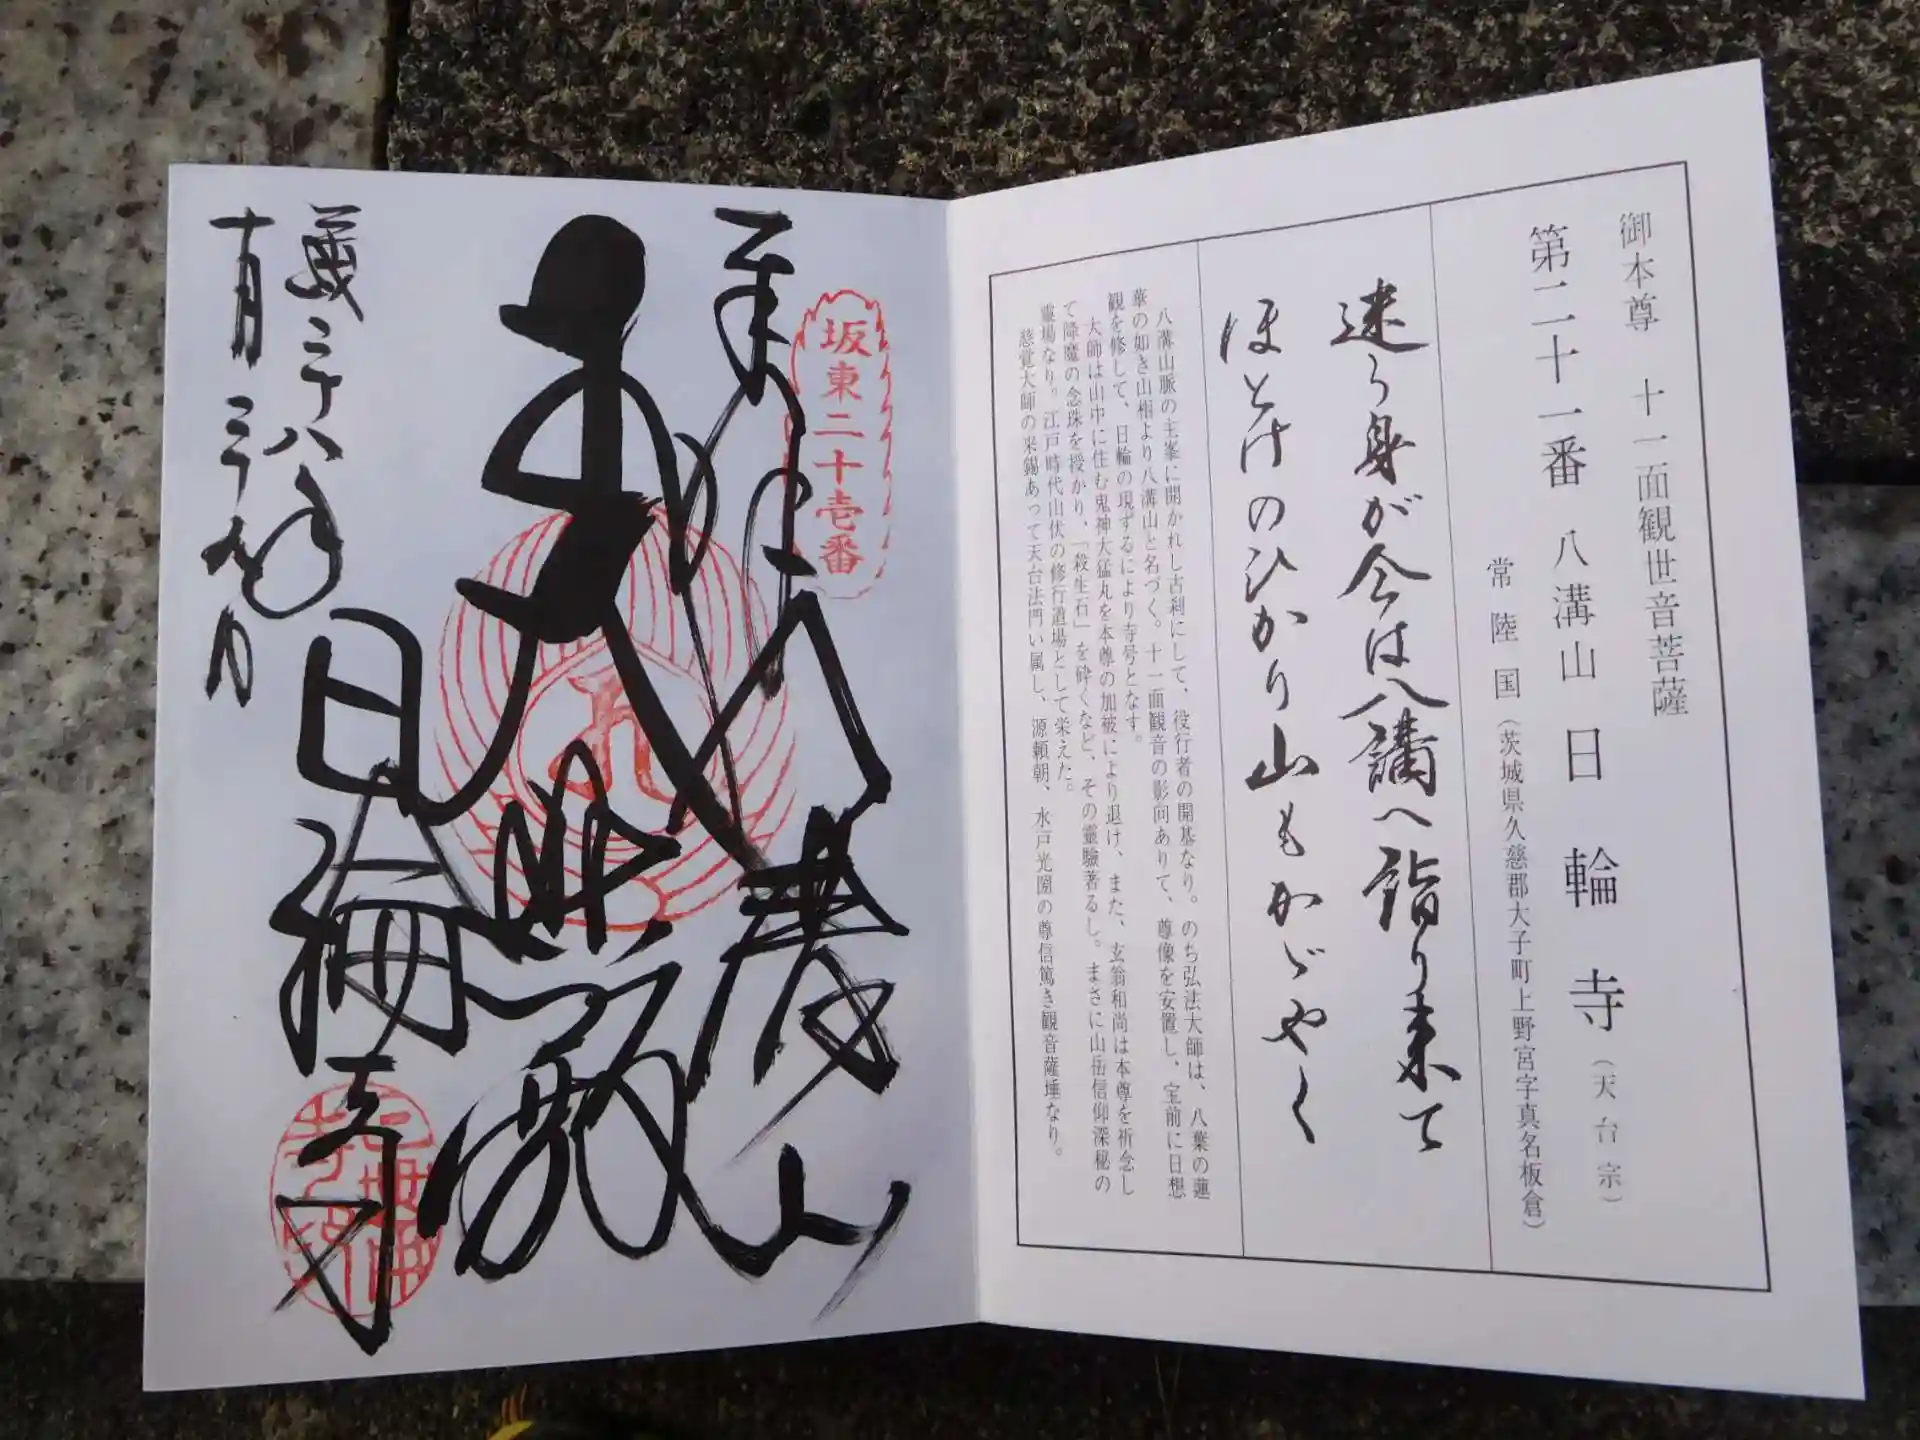 御本尊 十一面観世音菩薩
第二十一番 八溝山 日輪寺(天台宗)
常陸国(茨城県久慈郡大子町上野宮字真名板倉)
迷う身が今は八溝へ詣り来て
ほとけのひかり山もかゞやく
八溝山脈の主峯に開かれし古刹にして、役行者の開基なり。のち弘法大師は、八葉の蓮
華の如き山相より八溝山と名づく。十一面観音の影向ありて、尊像を安置し、宝前に日想
観を修して、日輪の現ずるにより寺号となす。
大師は山中に住む鬼神大猛丸を本尊の加被により退け、また、玄翁和尚は本尊を祈念し
て降魔の念珠を授かり、「殺生石」を砕くなど、その霊験著るし。まさに山岳信仰深秘の
霊場なり。江戸時代山伏の修行道場として栄えた。
慈覚大師の来錫あって天台法門い属し、源頼朝、水戸光圀の尊信篤き観音薩埵なり。
坂東二十壱番
奉拝 八溝山
大悲殿
日輪寺